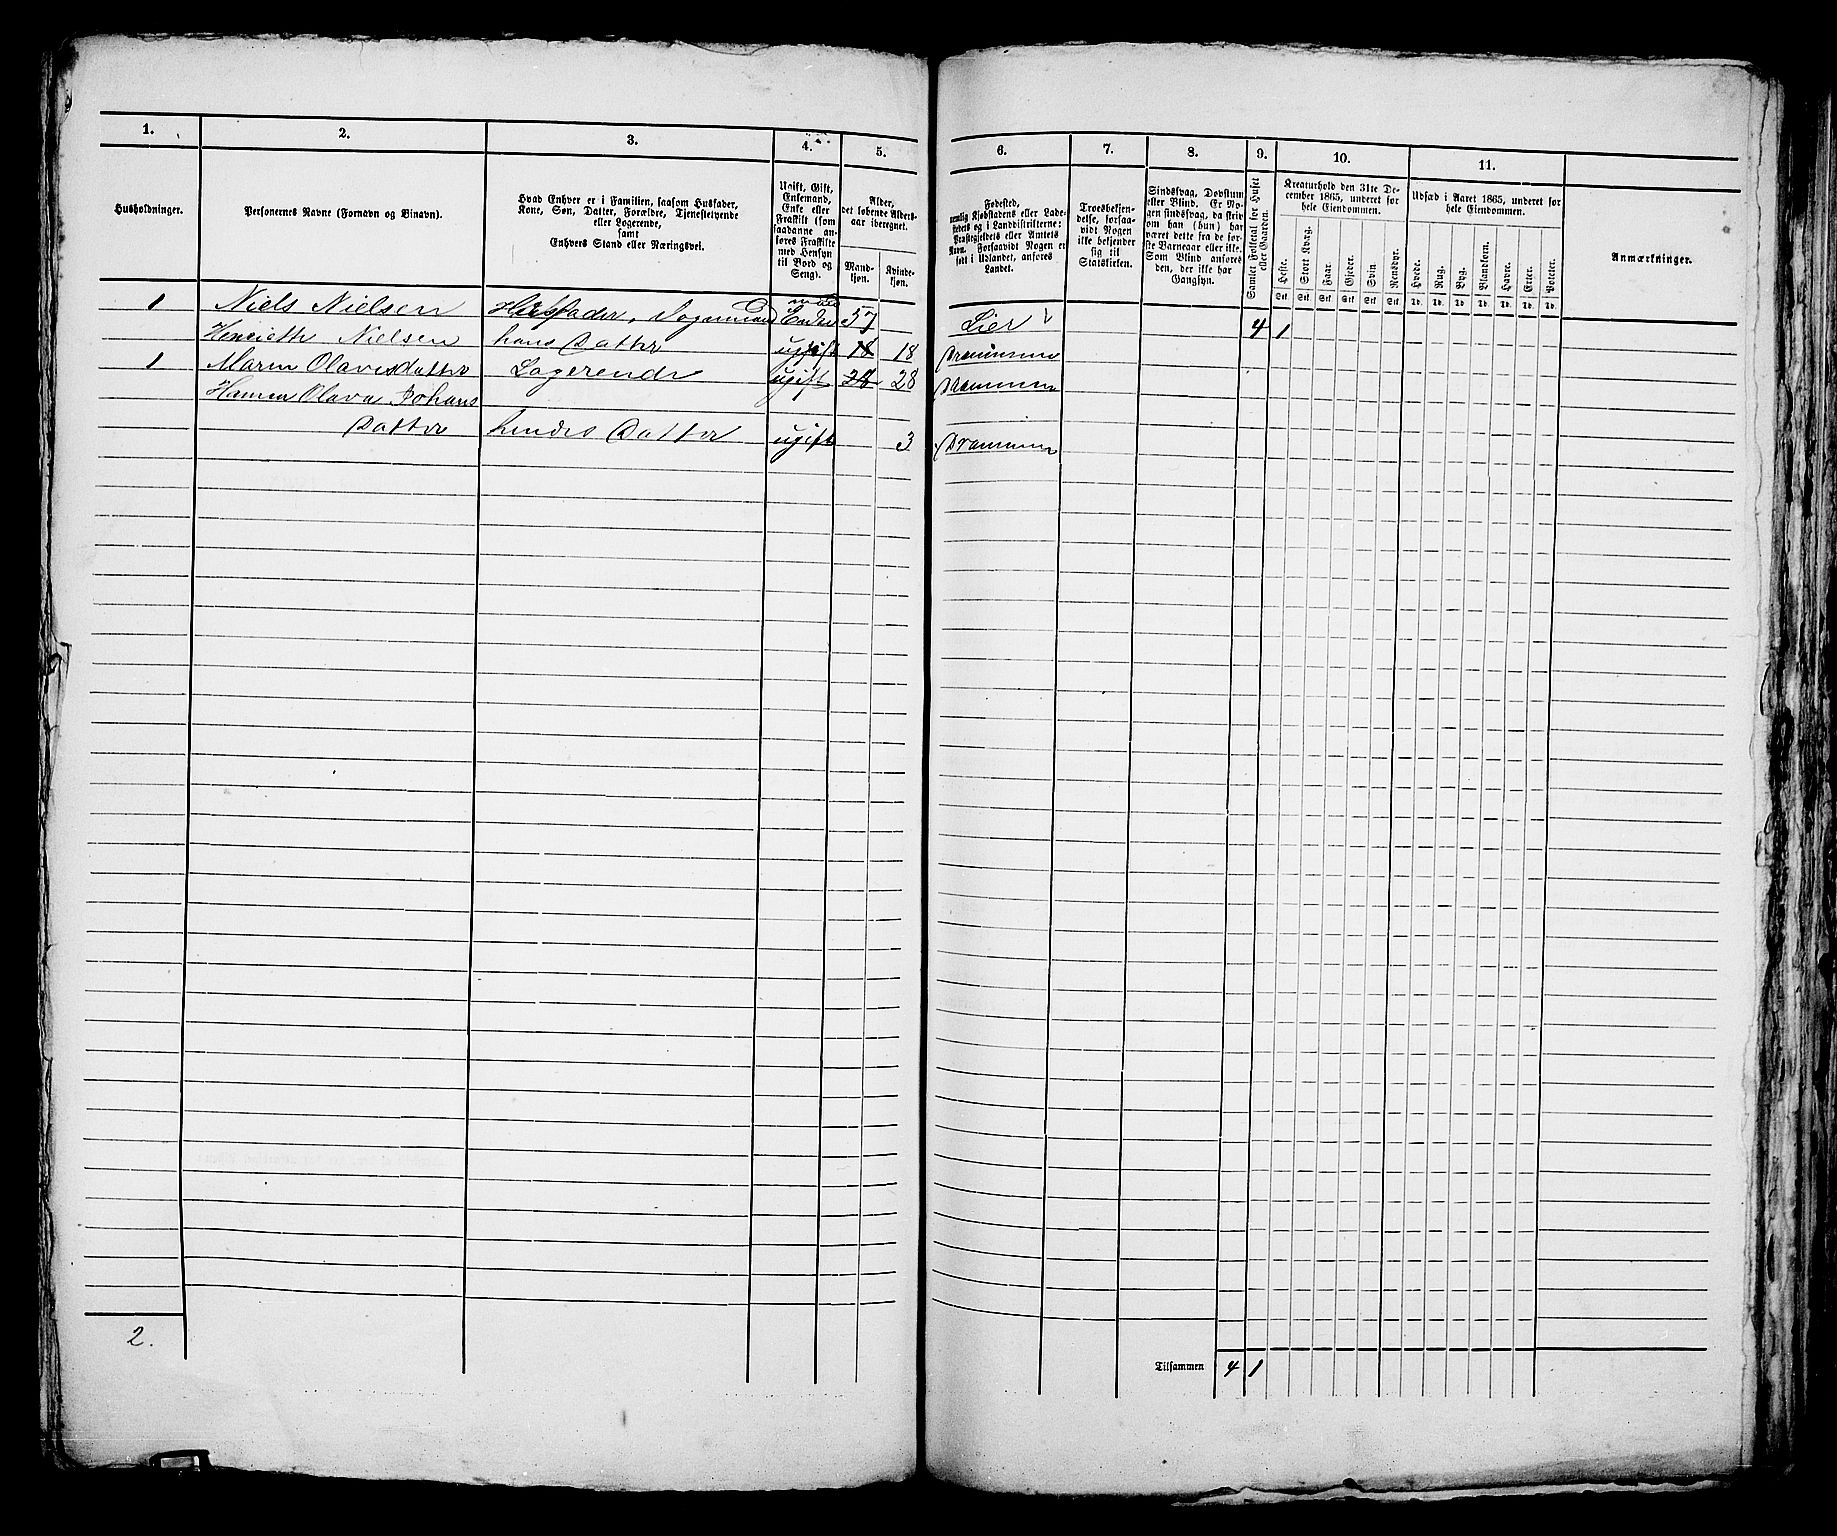 1. 2. 3. 4. 5. 6. 7. 8. 9. 10. 11.
Husholdninger.
Personernes Navne (Fornavn og Binavn).
Hvad Enhver er i Familien, saasom Husfader,
Kone, Søn, Datter, Forældre, Tjenestetyende
eller Logerende,
samt
Enhvers Stand eller Næringsvei.
Ugift, Gift,
Enkemand,
Enke eller
Fraskilt (som
saadanne an-
føres Fraskilte
med Hensyn
til Bord og
Seng).
Alder,
det løbende Alders-
aar iberegnet.
Mand-
kjøn.
Kvinde-
kjøn.
Fødested,
nemlig Kjøbstadens eller Lade-
stedets og i Landdistrikterne:
Præstegjeldets eller Amtets
Navn. Forsaavidt Nogen er
født i Udlandet, anføres
Landet.
Troesbekjen-
delse, forsaa-
vidt Nogen
ikke bekjender
sig til
Statskirken.
Sindssvag, Døvstum
eller Blind. Er No-
gen sindssvag, da skriv
om han (hun) har
været dette fra de før-
ste Barneaar eller ikke.
Som Blind anføres
den, der ikke har
Gangsyn.
Samlet Folketal for Huset
eller Gaarden.
Kreaturhold den 31te De-
cember 1865, underet for
hele Eiendommen.
Heste. Stort Kvæg. Faar. Gjeder. Svin. Rensdyr.
Stk. Stk. Stk. Stk. Stk. Stk.
Udsæd i Aaret 1865, underet for
hele Eiendommen.
Hvede. Rug. Byg. Blandkorn. Havre. Erter. Poteter.
Td. Td. Td. Td. Td. Td. Td.
Anmærkninger.
1 Niels Nielsen Husfader, Enke 57 Lier 4 1
mand
Nielsen hans Datter ugift 18 18 Drammen
1 Maren Olavesdatter Logerende ugift 28 28 Drammen
Olava Johans
Datter hendes Datter ugift 3 Drammen
2.
Tilsammen 4 1